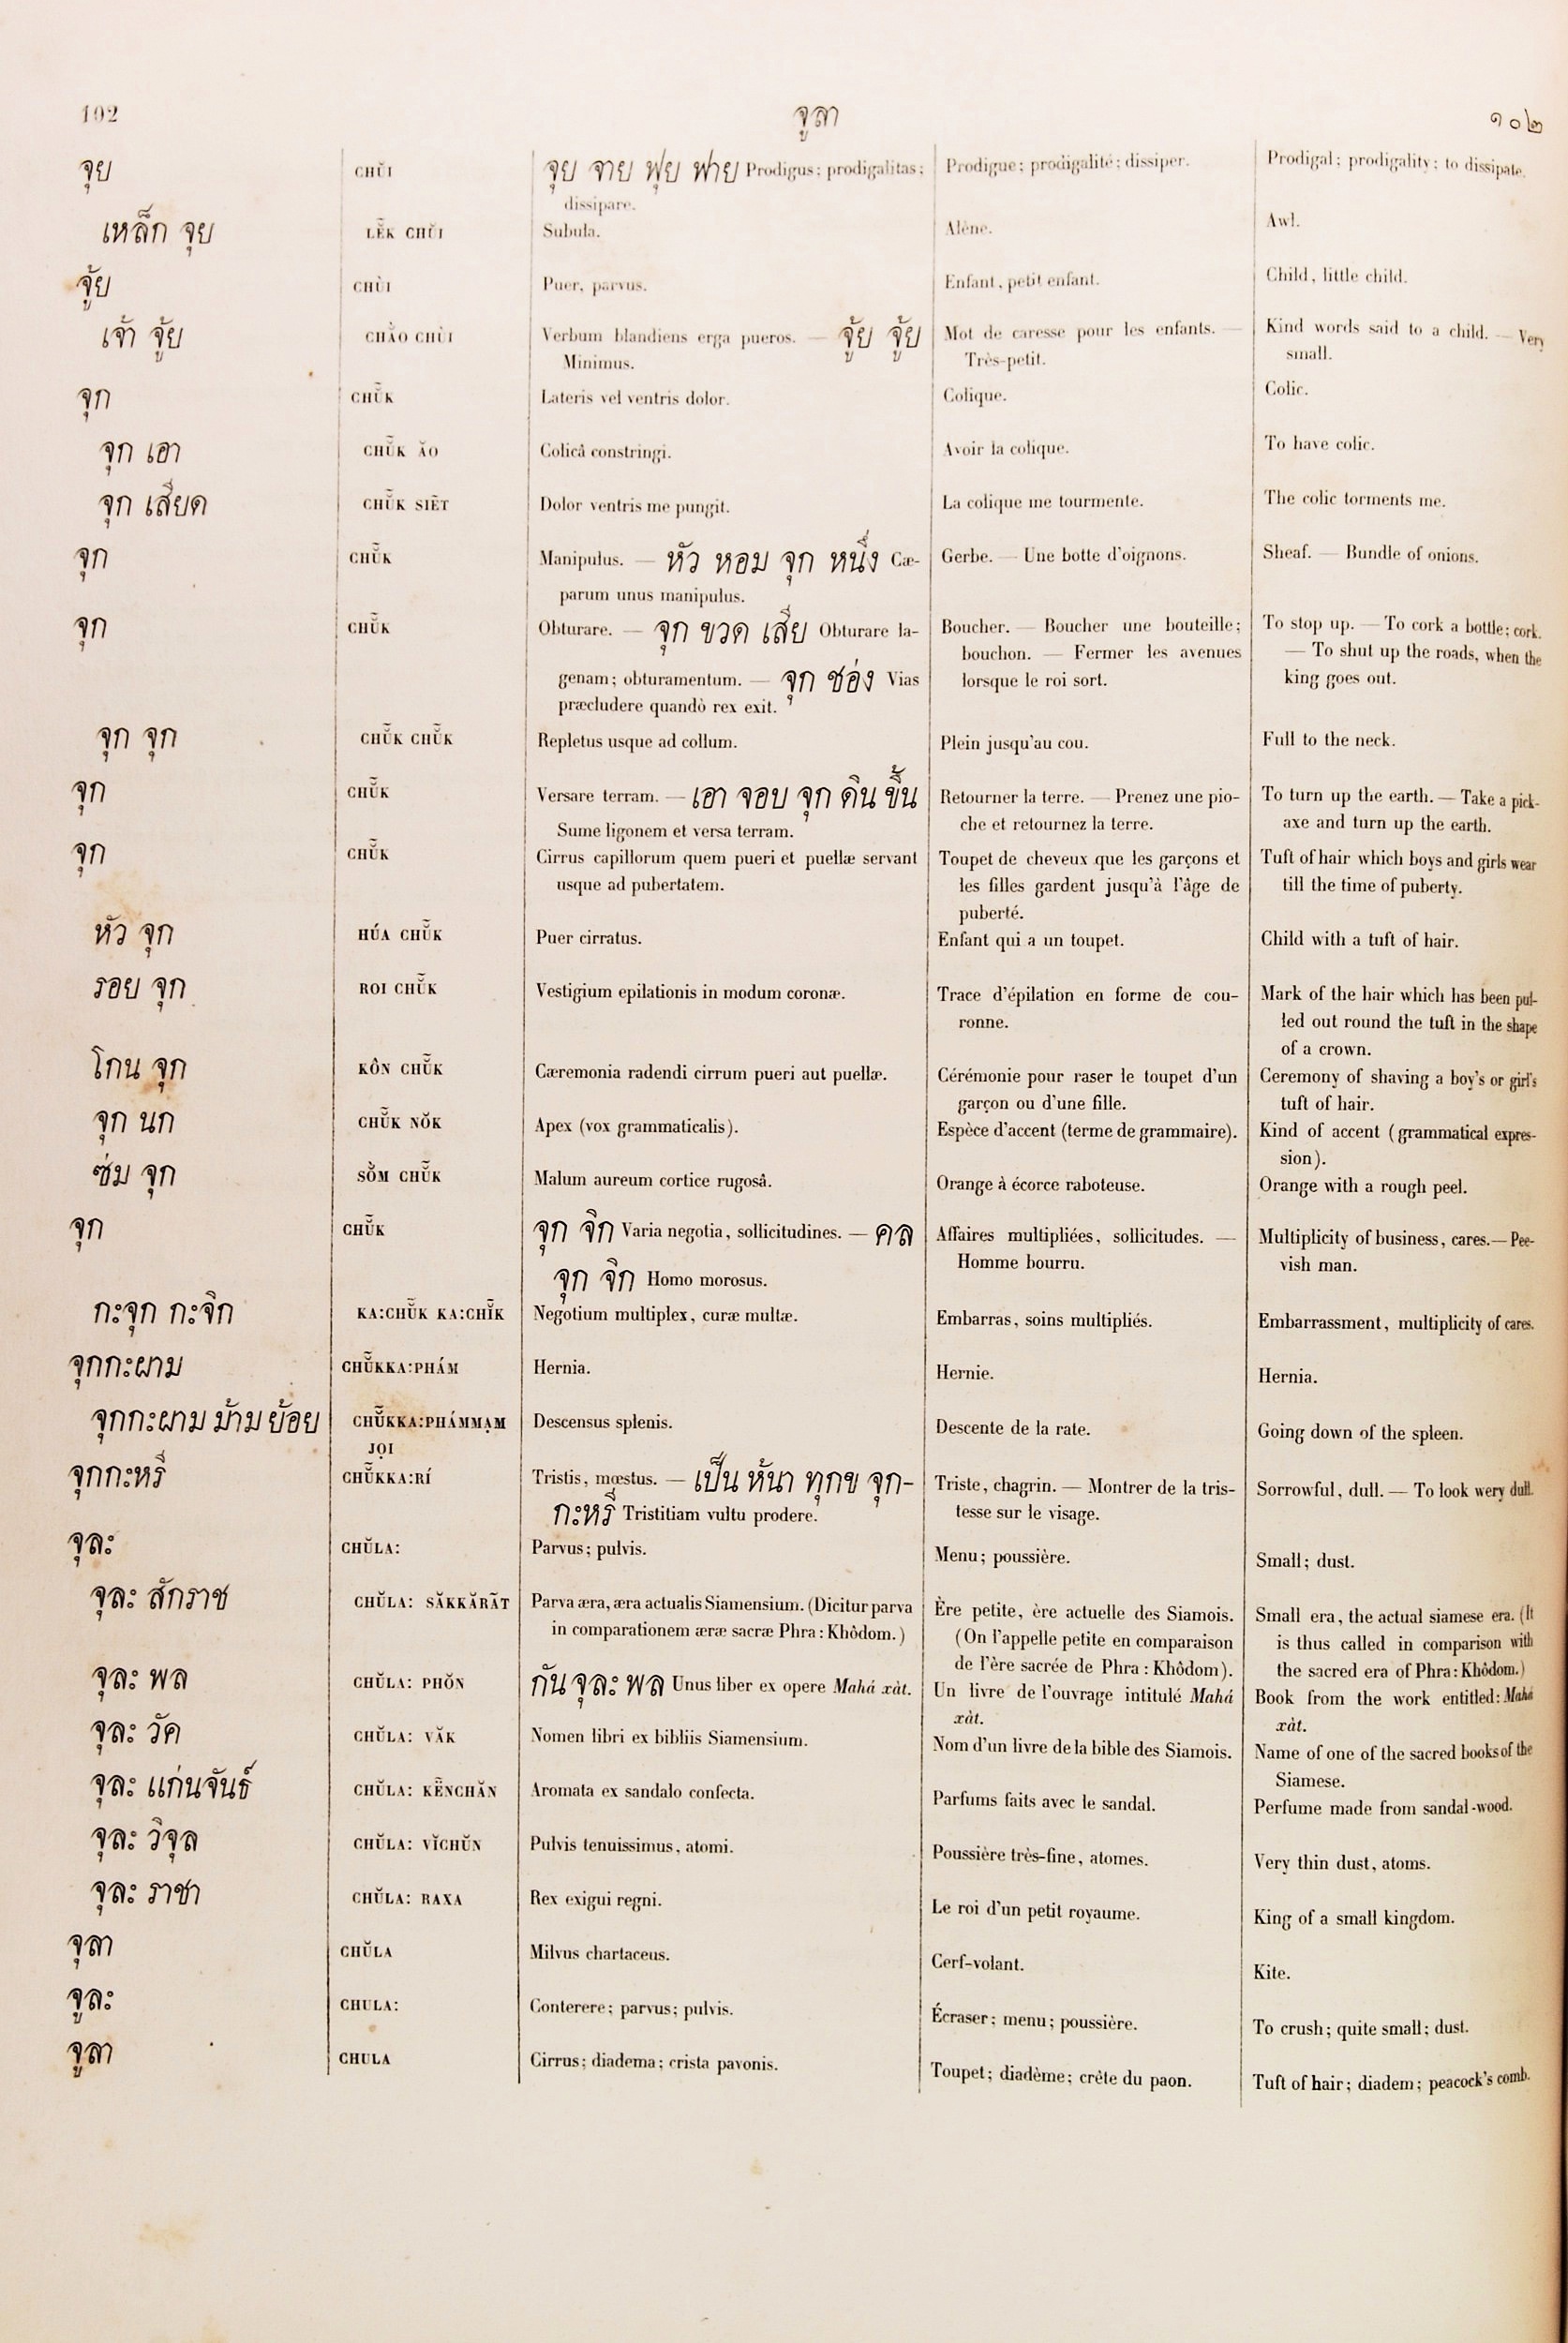 102 จูลา ๑๐๒
จุย CHŬI จุย จาย ฟุย ฟาย Prodigus; prodigalitas; Prodigue; prodigalité; dissiper. Prodigal; prodigality; to dissipate.
dissipare.
เหล็ก จุย LE᷆K CHŬI Subula. Alène. Awl.
จุ้ย CHÙI Puer, parvus. Enfant, petit enfant. Child, little child.
เจ้า จุ้ย CHÀO CHÙI Verbum blandiens erga pueros. — จุ้ย จุ้ย Mot de caresse pour les enfants. — Kind words said to a child. — Very
Minimus. Très-petit. small.
จุก CHŬ̃K Lateris vel ventris dolor. Colique. Colic.
จุก เอา CHŬ̃K ĂO Colicâ constringi. Avoir la colique. To have colic.
จุก เสียด CHŬ̃K SIẼT Dolor ventris me pungit. La colique me tourmente. The colic torments me.
จุก CHŬ̃K Manipulus. — หัว หอม จุก หนึ่ง Cæ- Gerbe. — Une botte d'oignons. Sheaf. — Bundle of onions.
parum unus manipulus.
จุก CHŬ̃K Obturare. — จุก ขวด เสีย Obturare la- Boucher. — Boucher une bouteille; To stop up. — To cork a bottle; cork.
bouchon. — Fermer les avenues — To shut up the roads, when the
genam; obturamentum. — จุก ช่อง Vias lorsque le roi sort. king goes out.
præcludere quandò rex exit.
จุก จุก CHŬ̃K CHŬ̃K Repletus usque ad collum. Plein jusqu'au cou. Full to the neck.
จุก CHŬ̃K Versare terram. — เอา จอบ จุก ดิน ขึ้น Retourner la terre. — Prenez une pio- To turn up the earth. — Take a pick-
Sume ligonem et versa terram. che et retournez la terre. axe and turn up the earth.
จุก CHŬ̃K Cirrus capillorum quem pueri et puellæ servant Toupet de cheveux que les garçons et Tuft of hair which boys and girls wear
usque ad pubertatem. les filles gardent jusqu'à l'âge de till the time of puberty.
puberté.
หัว จุก HÚA CHŬ̃K Puer cirratus. Enfant qui a un toupet. Child with a tuft of hair.
รอย จุก ROI CHŬ̃K Vestigium epilationis in modum coronæ. Trace d'épilation en forme de cou- Mark of the hair which has been pul-
ronne. led out round the tuft in the shape
of a crown.
โกน จุก KÔN CHŬ̃K Cæremonia radendi cirrum pueri aut puellæ. Cérémonie pour raser le toupet d'un Ceremony of shaving a boy's or girl's
garçon ou d'une fille. tuft of hair.
จุก นก CHŬ̃K NŎK Apex (vox grammaticalis). Espèce d'accent (terme de grammaire). Kind of accent (grammatical expres-
sion).
ซ่ม จุก SŎ̀M CHŬ̃K Malum aureum cortice rugosâ. Orange à écorce raboteuse. Orange with a rough peel.
จุก CHŬ̃K จุก จิก Varia negotia, sollicitudines. — คล Affaires multipliées, sollicitudes. — Multiplicity of business, cares. — Pee-
จุก จิก Homo morosus. Homme bourru. vish man.
กะจุก กะจิก KA:CHŬ̃K KA:CHĬ̃K Negotium multiplex, curæ multæ. Embarras, soins multipliés. Embarrassment, multiplicity of cares.
จุกกะผาม CHŬ̃KKA:PHÁM Hernia. Hernie. Hernia.
จุกกะผาม ม้าม ย้อย CHŬ̃KKA:PHÁMMẠM Descensus splenis. Descente de la rate. Going down of the spleen.
JỌI
จุกกะหรี CHŬ̃KKA:RÍ Tristis, mœstus. — เป็น ห้นา ทุกข จุก- Triste, chagrin. — Montrer de la tris- Sorrowful, dull. — To look wery dull.
กะหรี Tristitiam vultu prodere. tesse sur le visage.
จุละ CHŬLA: Parvus; pulvis. Menu; poussière. Small; dust.
จุละ สักราช CHŬLA: SĂKKĂRÃT Parva æra, æra actualis Siamensium. (Dicitur parva Ère petite, ère actuelle des Siamois. Small era, the actual siamese era. (It
in comparationem æræ sacræ Phra: Khôdom.) (On l'appelle petite en comparaison is thus called in comparison with
de l'ère sacrée de Phra: Khôdom). the sacred era of Phra: Khôdom.)
จุละ พล CHŬLA: PHŎN กัน จุละ พล Unus liber ex opere Mahá xàt. Un livre de l'ouvrage intitulé Mahá Book from the work entitled: Mahá
xàt. xàt.
จุละ วัค CHŬLA: VĂK Nomen libri ex bibliis Siamensium. Nom d'un livre de la bible des Siamois. Name of one of the sacred books of the
Siamese.
จุละ แก่นจันธ์ CHŬLA: KẼNCHĂN Aromata ex sandalo confecta. Parfums faits avec le sandal. Perfume made from sandal-wood.
จุละ วิจุล CHŬLA: VĬCHŬN Pulvis tenuissimus, atomi. Poussière très-fine, atomes. Very thin dust, atoms.
จุละ ราชา CHŬLA: RAXA Rex exigui regni. Le roi d'un petit royaume. King of a small kingdom.
จุลา CHŬLA Milvus chartaceus. Cerf-volant. Kite.
จูละ CHULA: Conterere; parvus; pulvis. Écraser; menu; poussière. To crush; quite small; dust.
จูลา CHULA Cirrus; diadema; crista pavonis. Toupet; diadème; crête du paon. Tuft of hair; diadem; peacock's comb.